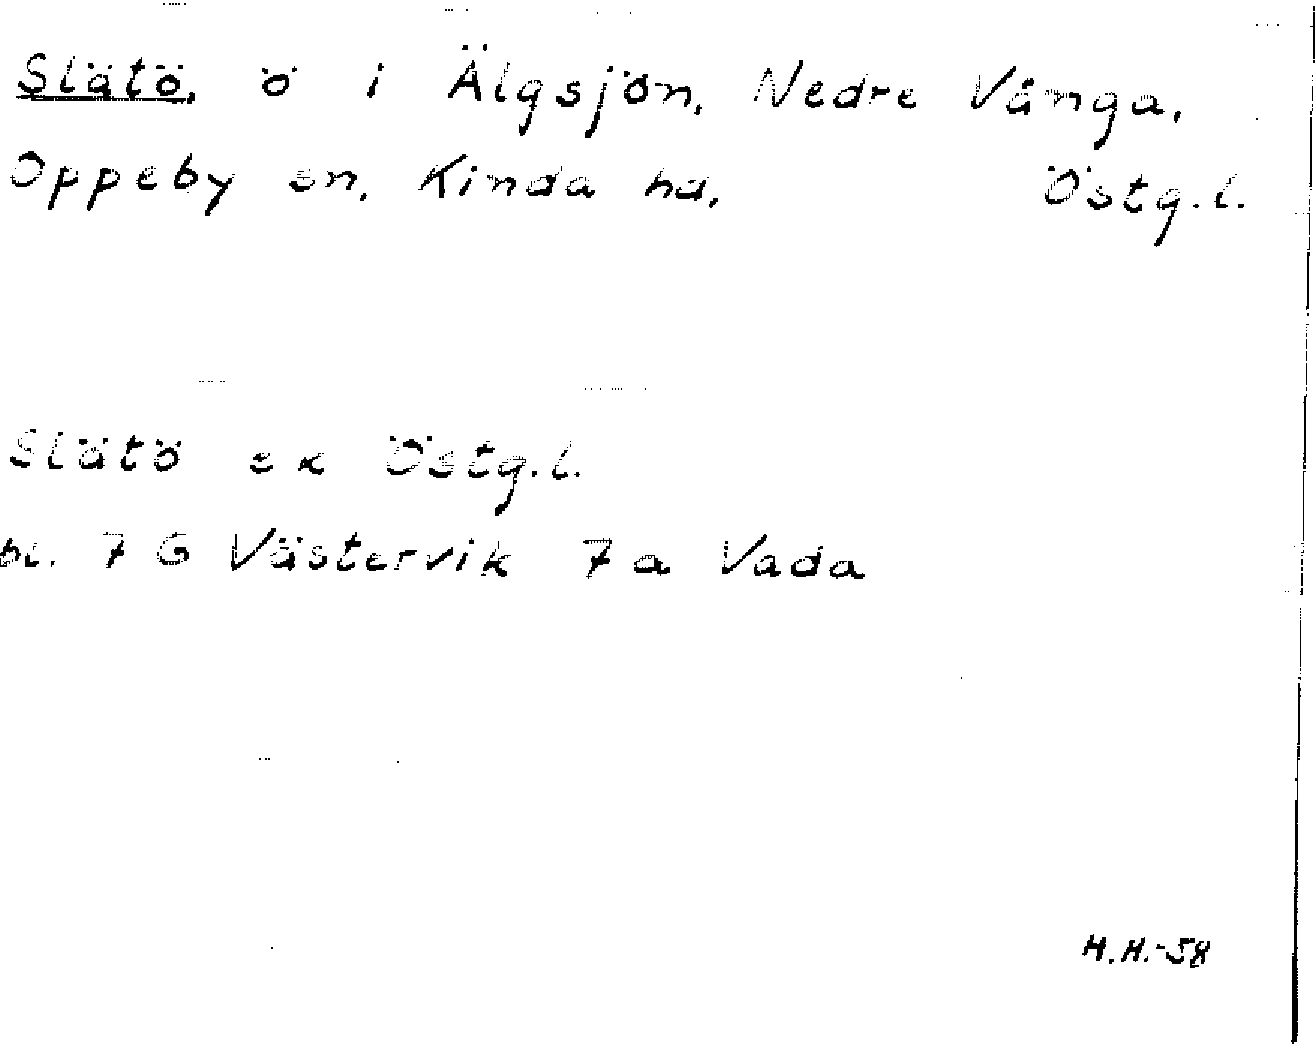 Slätö, ö i Älgsjön, Nedre Vånga,
Oppeby sn, Kinda hd, Östg.l.
Slätö ek Östg.l.
bl. 7 G Västervik 7 a Vada
H.H.-58